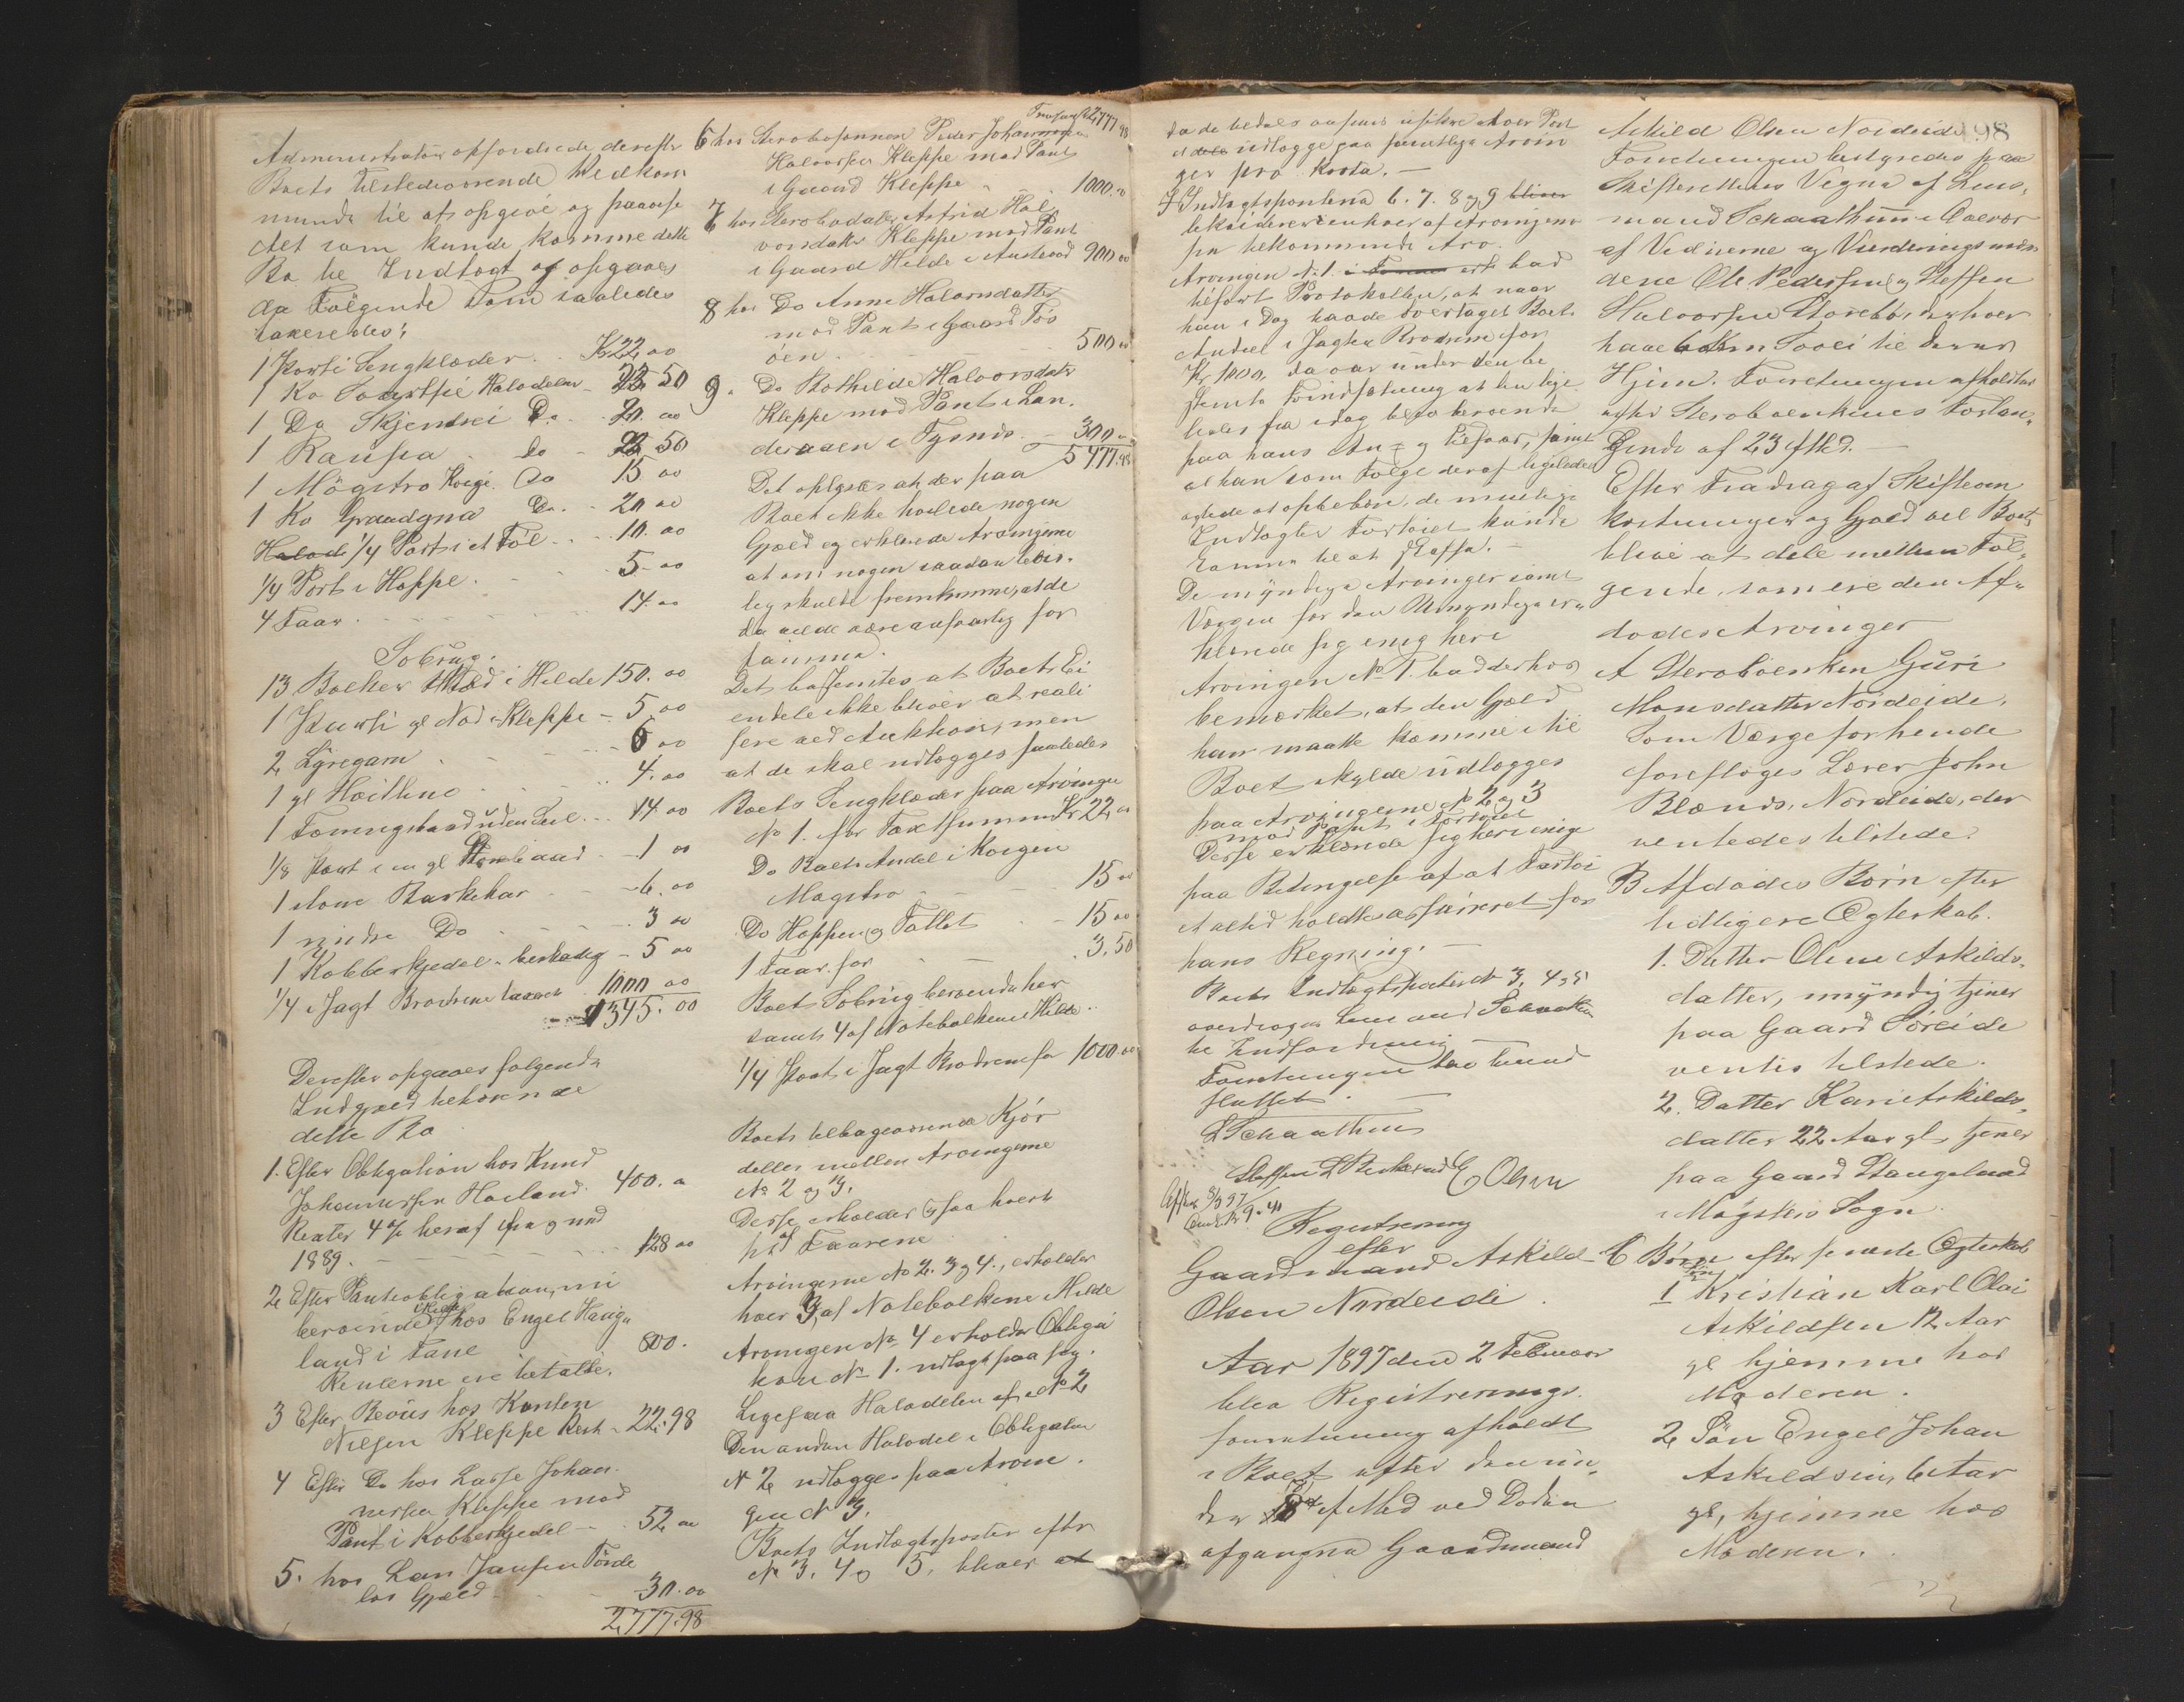 Administrator opfordrede derefter
Boets tilstedeværende Vedkom
mende til at opgive og paavise
det som kunde komme dette
Bo til Indtægt og opgaves
da Følgende som saaledes
taxeredes:
1 Part i Sengklæder Kr 22,00
1 Ko Halvdelen 50
1 Do Skjendrei Do 20 00
1 Raupa do 50
1 Møgstro Kvige Do 15 00
1 Ko Graadyna Do. 20 00
1/4 Part i et Føl 10.00
1/4 Port i Hoppe 5-00
4 Faar 14.00
Søbrug.
13 Bølker i Hilde 150.00
1 gl Nod i Kleppe 5 00
2 Lyregarn 6 00
1 gl 4.00
1 uden Seil 14 00
1/8 Part i en gl 1 00
1 stone Barkekar 6.00
1 mindre Do 3 00
1 Kobberkjedel beskadig 5 00
1/4 i Jagt Brødrene taxeret 1000 00
1345.00
Derefter opgaves følgende
Indgjæld tilhørende
dette Bo
1. Efter Obligation hos Knud
Johannessen Havland. 400.
Renter 4 % heraf fra og med
1889. 128 00
2, Efter Panteobligation, nu
beroende hos Engel Hauge
land i Fane 800.
Renterne ere betalte.
3 Efter Beviis hos Karsten
Nilsen Kleppe Rest 22.98
4 Efter Do hos Lasse Johan
nessen Kleppe mod
Pant i Kobberkjedel 52,00
5. hos Lars Jansen Førde
løs Gjæld 30.00
2,777.98
Transport 2,777 98
6 hos Sterbosønnen Peder Johannes
Halvorsen Kleppe mod Pant
i Gaard Kleppe 1000.00
7 hos Sterbodatter Astrid Hal
vorsdatter Kleppe mod Pant
i Gaard Hilde i Austevold 900 00
8 hos Do Anne Halvorsdatter
mod Pant i Gaard Fos
øen 500 00
9. Do Bothilde Halvorsdatter
Kleppe mod Pant i Lan
deraaen i Tysnes 300 00
5477.98
Det oplystes at der paa
Boet ikke heftede nogen
Gjæld og erklærede Arvingerne
at om nogen saadan bevis
lig skulde fremkomme, at de
da vilde være ansvarlig for
samme.
Det besluttes at Boets Ei
endele ikke bliver at reali
sere ved Auktion, men
at de skal udlægges saaledes
Boets Sengklæder paa Arvinge
No 1. for Taxtsummen Kr 22,00
Do Boets Andel i Kvigen
Møgstro 15 00
Do Hoppen og Føllet 15 00
1 Faar for 3,50
Boets Søbrug beroende her
samt 4 af Notebølkene i Hilde
1/4 Part i Jagt Brødrene for 1000.00
Boets tilbageværende Kjør
deles mellem Arvingerne
No 2 og 3.
Desse erholder ogsaa hvert
af Faarene
Arvingerne No 2. 3 og 4., erholder
hver 3 af Notebølkene i Hilde
Arvingen No 4 erholder Obliga
tion No 1. udlagt paa sig.
Ligesaa Halvdelen af No 2
Den anden Halvdel i Obligation
No 2, udlægges paa Arvin
gen No 3.
Boets Indtægtsposter efter
No 3, 4 og 5, bliver at
da de ansees usikre
udlægge paa samtlige Arvin
ger pro kvota.
Indtægtsposterne 6. 7. 8 og 9
enhver af Arvingerne
paa tilkommende Arv.
Arvingen No 1. bad
tilført Protokollen, at naar
han i Dag havde overtaget Boets
Andel i Jagten Brødrene for
Kr. 1000, da var under den be
stemte Forudsætning at den lige
ledes fra idag blev beroende
paa hans An- og Tilsvar, samt
at han som Følge deraf ligeledes
agtede at oppebære de mulige
Indtægter Fartøiet kunde
komme til at skaffe.
De myndige Arvinger samt
Værgen for den Umyndige er-
klærede sig enig heri
Arvingen No 1. bad derhos
bemærket, at den Gjæld
han maatte komme i til
Boet skulde udlægges
paa Arvingerne No 2 og 3
mod Pant i Fartøiet
Desse erklærede sig heri enige
paa Betingelse af at Fartøi
et altid holdtes assureret for
hans Regning.
Boets Indtægtsposter No 3, 4 og 5
overdroges Lensmand Schaathun
til Indfordring
Forretningen blev hermed
sluttet.
L Schaathun
Steffen L E Olsen
Registrering
efter
Gaardmand Askild
Olsen Nordeide.
Aar 1897 den 2 Februar
blev Registrerings
forretning afholdt
i Boet efter den un
der 8 f Md ved Døden
afgangne Gaardmand
98
Askild Olsen Nordeide
Forretningen bestyredes paa
Skifterettens Vegne af Lens-
mand Schaathun i Overvær
af Vidnerne og Vurderingsmæn
dene Ole Pedersen og Steffen
Halvorsen Storebø, der hver
have 6 Km Søvei til deres
Hjem. Forretningen afholdtes
efter Sterboenkens Forlan-
gende af 23 f Md.
Efter Fradrag af Skifteom
kostninger og Gjæld vil Boet
blive at dele mellem Føl-
gende, som ere den Af-
dødes Arvinger
A Sterboenken Guri
Monsdatter Nordeide.
Som Værge for hende
foresloges Lærer John
Blænes, Nordeide, der
ventedes tilstede.
B Afdødes Børn efter
tidligere Ægteskab.
1. Datter Oline Askilds-
datter, myndig tjener
paa Gaard Søreide
ventes tilstede.
2. Datter Kari Askilds-
datter 22 Aar gl tjener
paa Gaard Stangeland
i Møgsters Sogn.
C Børn efter seneste Ægteskab
1 Søn Kristian Karl Olai
Askildsen 12 Aar
gl hjemme hos
Moderen.
2, Søn Engel Johan
Askildsen, 6 Aar
gl, hjemme hos
Moderen.